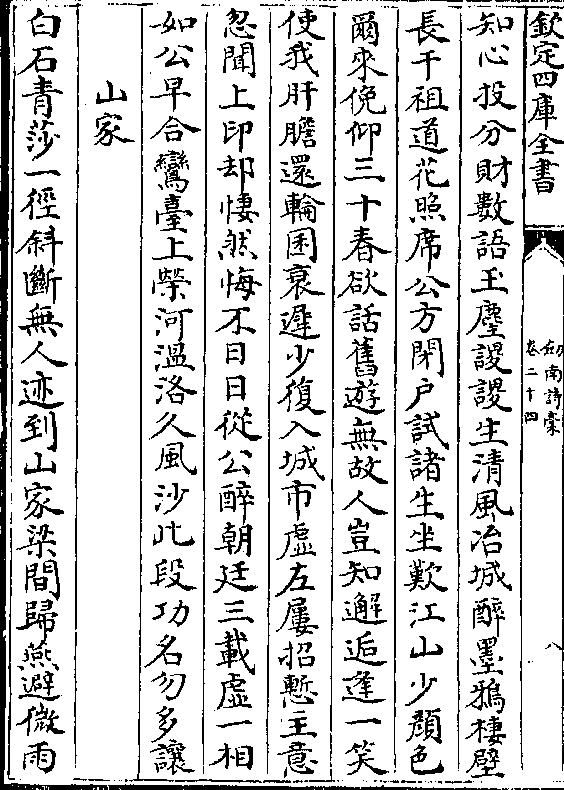 欽定四庫全書
劔南詩藁
卷二十四
八
知心投分財數語玉麈謖謖生清風冶城醉墨鴉棲壁
長干祖道花照席公方閉户試諸生坐歎江山少顔色
爾來俛仰三十春欲話舊遊無故人豈知邂逅逢一笑
使我肝膽還輪囷衰遲少復入城市虛左屢招慙主意
忽聞上印却悽然悔不日日從公醉朝廷三載虛一相
如公早合鸞臺上榮河溫洛久風沙此段功名勿多讓
山家
白石青莎一徑斜斷無人迹到山家梁間歸燕避微雨